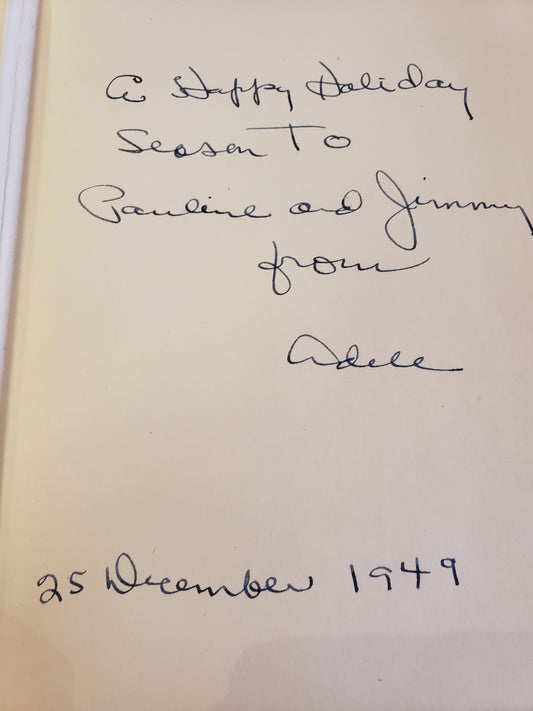 A Happy Holiday
Season To
Pauline and Jimmy
from
Adele
25 December 1949